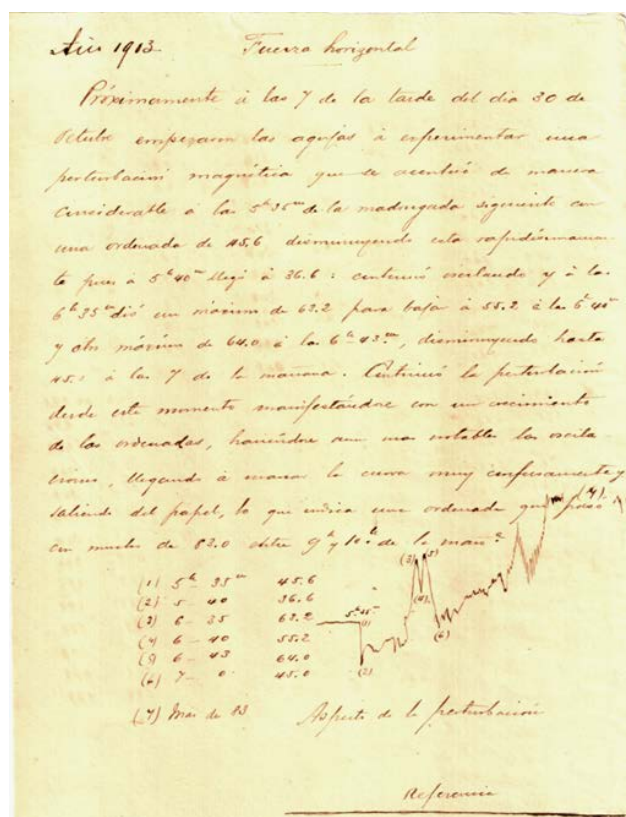 Año 1913 Fuerza horizontal
Próximamente á las 7 de la tarde del dia 30 de
Octubre empezaron las agujas á experimentar una
perturbación magnética que se acentuó de manera
considerable á las 5ʰ 35ᵐ de la madrugada siguiente con
una ordenada de 45.6 disminuyendo esta rapidísimamen-
te pues á 5ʰ 40ᵐ llegó á 36.6: continuó oscilando y á las
6ʰ 35ᵐ dió un máximo de 63.2 para bajar á 55.2 á las 6ʰ 40ᵐ
y otro máximo de 64.0 á las 6ʰ 43ᵐ, disminuyendo hasta
45.0 á las 7 de la mañana. Continuó la perturbación
desde este momento manifestándose con un crecimiento
de las ordenadas, haciéndose aun mas notable las oscila
ciones, llegando á marcar la curva muy confusamente y
saliendo del papel, lo que indica una ordenada que pasó (7)
con mucho de 83.0 entre 9ʰ y 10ʰ de la mañª
(1) 5ʰ - 35ᵐ 45.6
(2) 5 - 40 36.6
(3) 6 - 35 63.2
(4) 6 - 40 55.2
(5) 6 - 43 64.0
(6) 7 - 0 45.0
(7) Mas de 83
5ʰ 35ᵐ
(1)
(2)
(3) (5)
(4)
(6)
Aspecto de la perturbación
Referencia